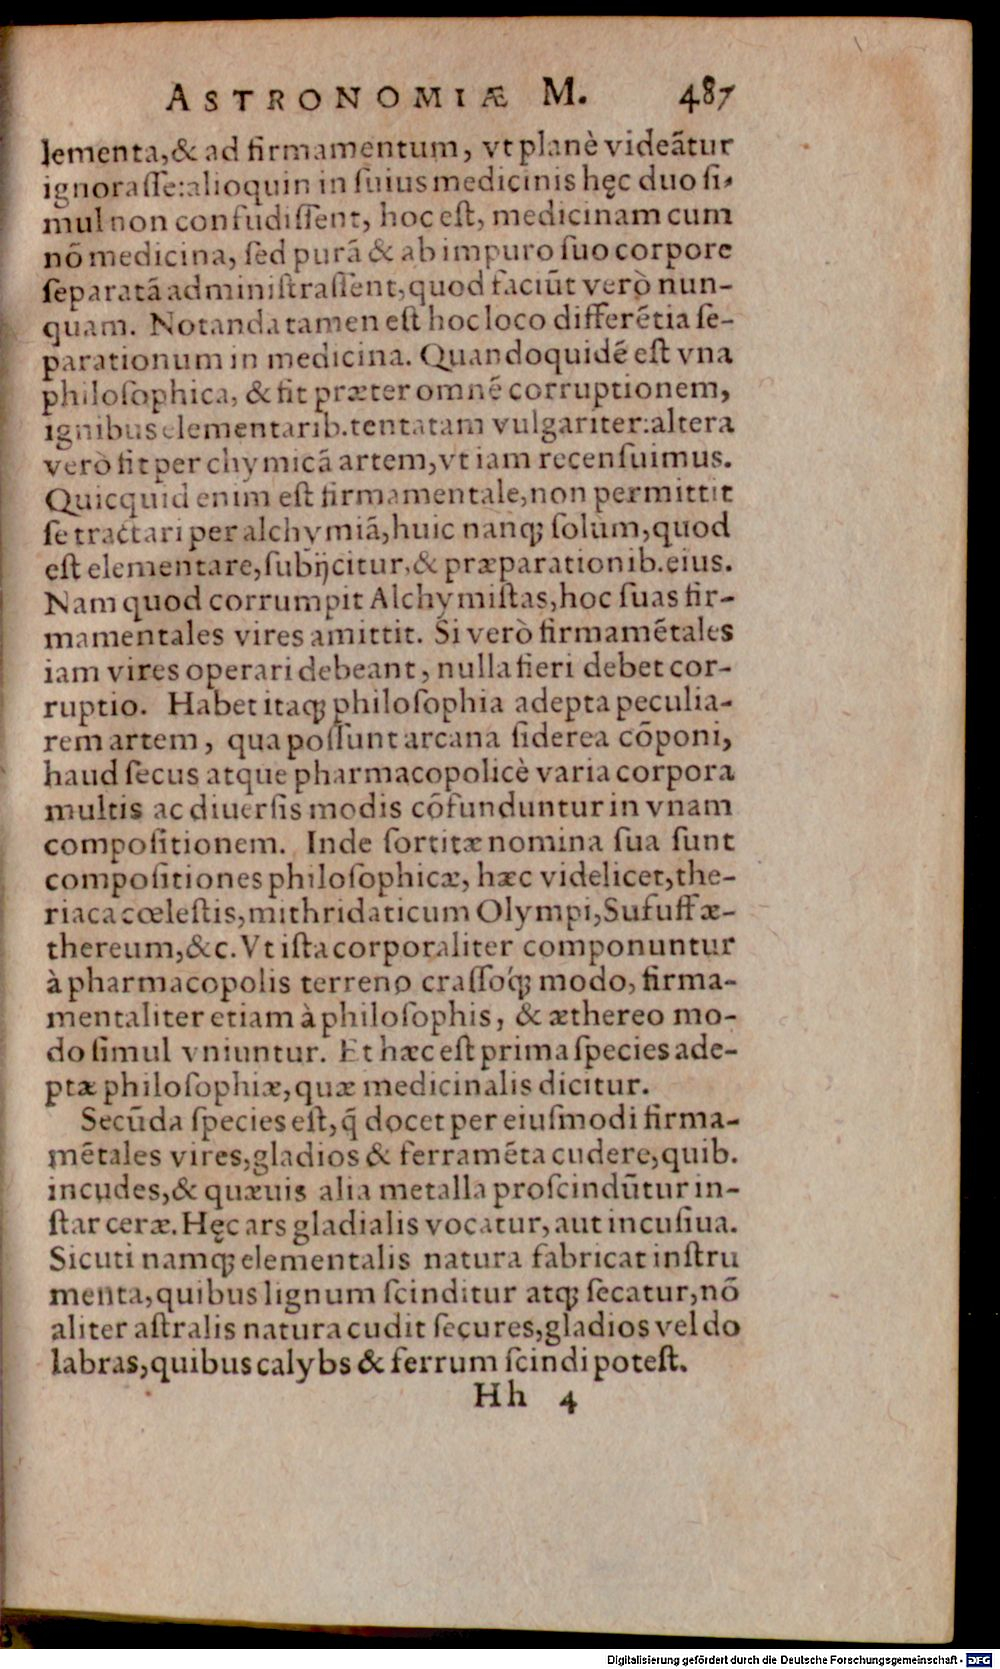 ASTRONOMIÆ M. 487
lementa,& ad firmamentum, vt planè videãtur
ignorasse:alioquin in suius medicinis hęc duo si-
mul non confudissent, hoc est, medicinam cum
nõ medicina, sed purã & ab impuro suo corpore
separatã administrassent,quod faciũt verò nun-
quam. Notanda tamen est hoc loco differẽtia se-
parationum in medicina. Quandoquidẽ est vna
philosophica, & fit præter omnẽ corruptionem,
ignibus elementarib.tentatam vulgariter:altera
verò fit per chymicã artem,vt iam recensuimus.
Quicquid enim est firmamentale,non permittit
se tractari per alchymiã,huic nanq; solùm,quod
est elementare,subijcitur,& præparationib.eius.
Nam quod corrumpit Alchymistas,hoc suas fir-
mamentales vires amittit. Si verò firmamẽtales
iam vires operari debeant, nulla fieri debet cor-
ruptio. Habet itaq; philosophia adepta peculia-
rem artem, qua possunt arcana siderea cõponi,
haud secus atque pharmacopolicè varia corpora
multis ac diuersis modis cõfunduntur in vnam
compositionem. Inde sortitæ nomina sua sunt
compositiones philosophicæ, hæc videlicet,the-
riaca cœlestis,mithridaticum Olympi,Sufuff æ-
thereum,&c. Vt ista corporaliter componuntur
à pharmacopolis terreno crassóq; modo, firma-
mentaliter etiam à philosophis, & æthereo mo-
do simul vniuntur. Et hæc est prima species ade-
ptæ philosophiæ,quæ medicinalis dicitur.
Secũda species est,q̃ docet per eiusmodi firma-
mẽtales vires,gladios & ferramẽta cudere,quib.
incudes,& quæuis alia metalla proscindũtur in-
star ceræ.Hęc ars gladialis vocatur,aut incusiua.
Sicuti namq; elementalis natura fabricat instru
menta,quibus lignum scinditur atq; secatur,nõ
aliter astralis natura cudit secures,gladios vel do
labras,quibus calybs & ferrum scindi potest.
Hh 4
Digitalisierung gefördert durch die Deutsche Forschungsgemeinschaft - DFG